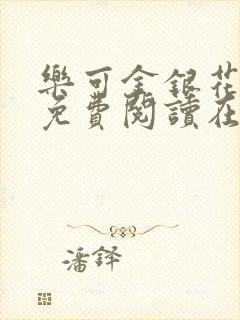 樂可金銀花
免費閱讀在
潘鐸